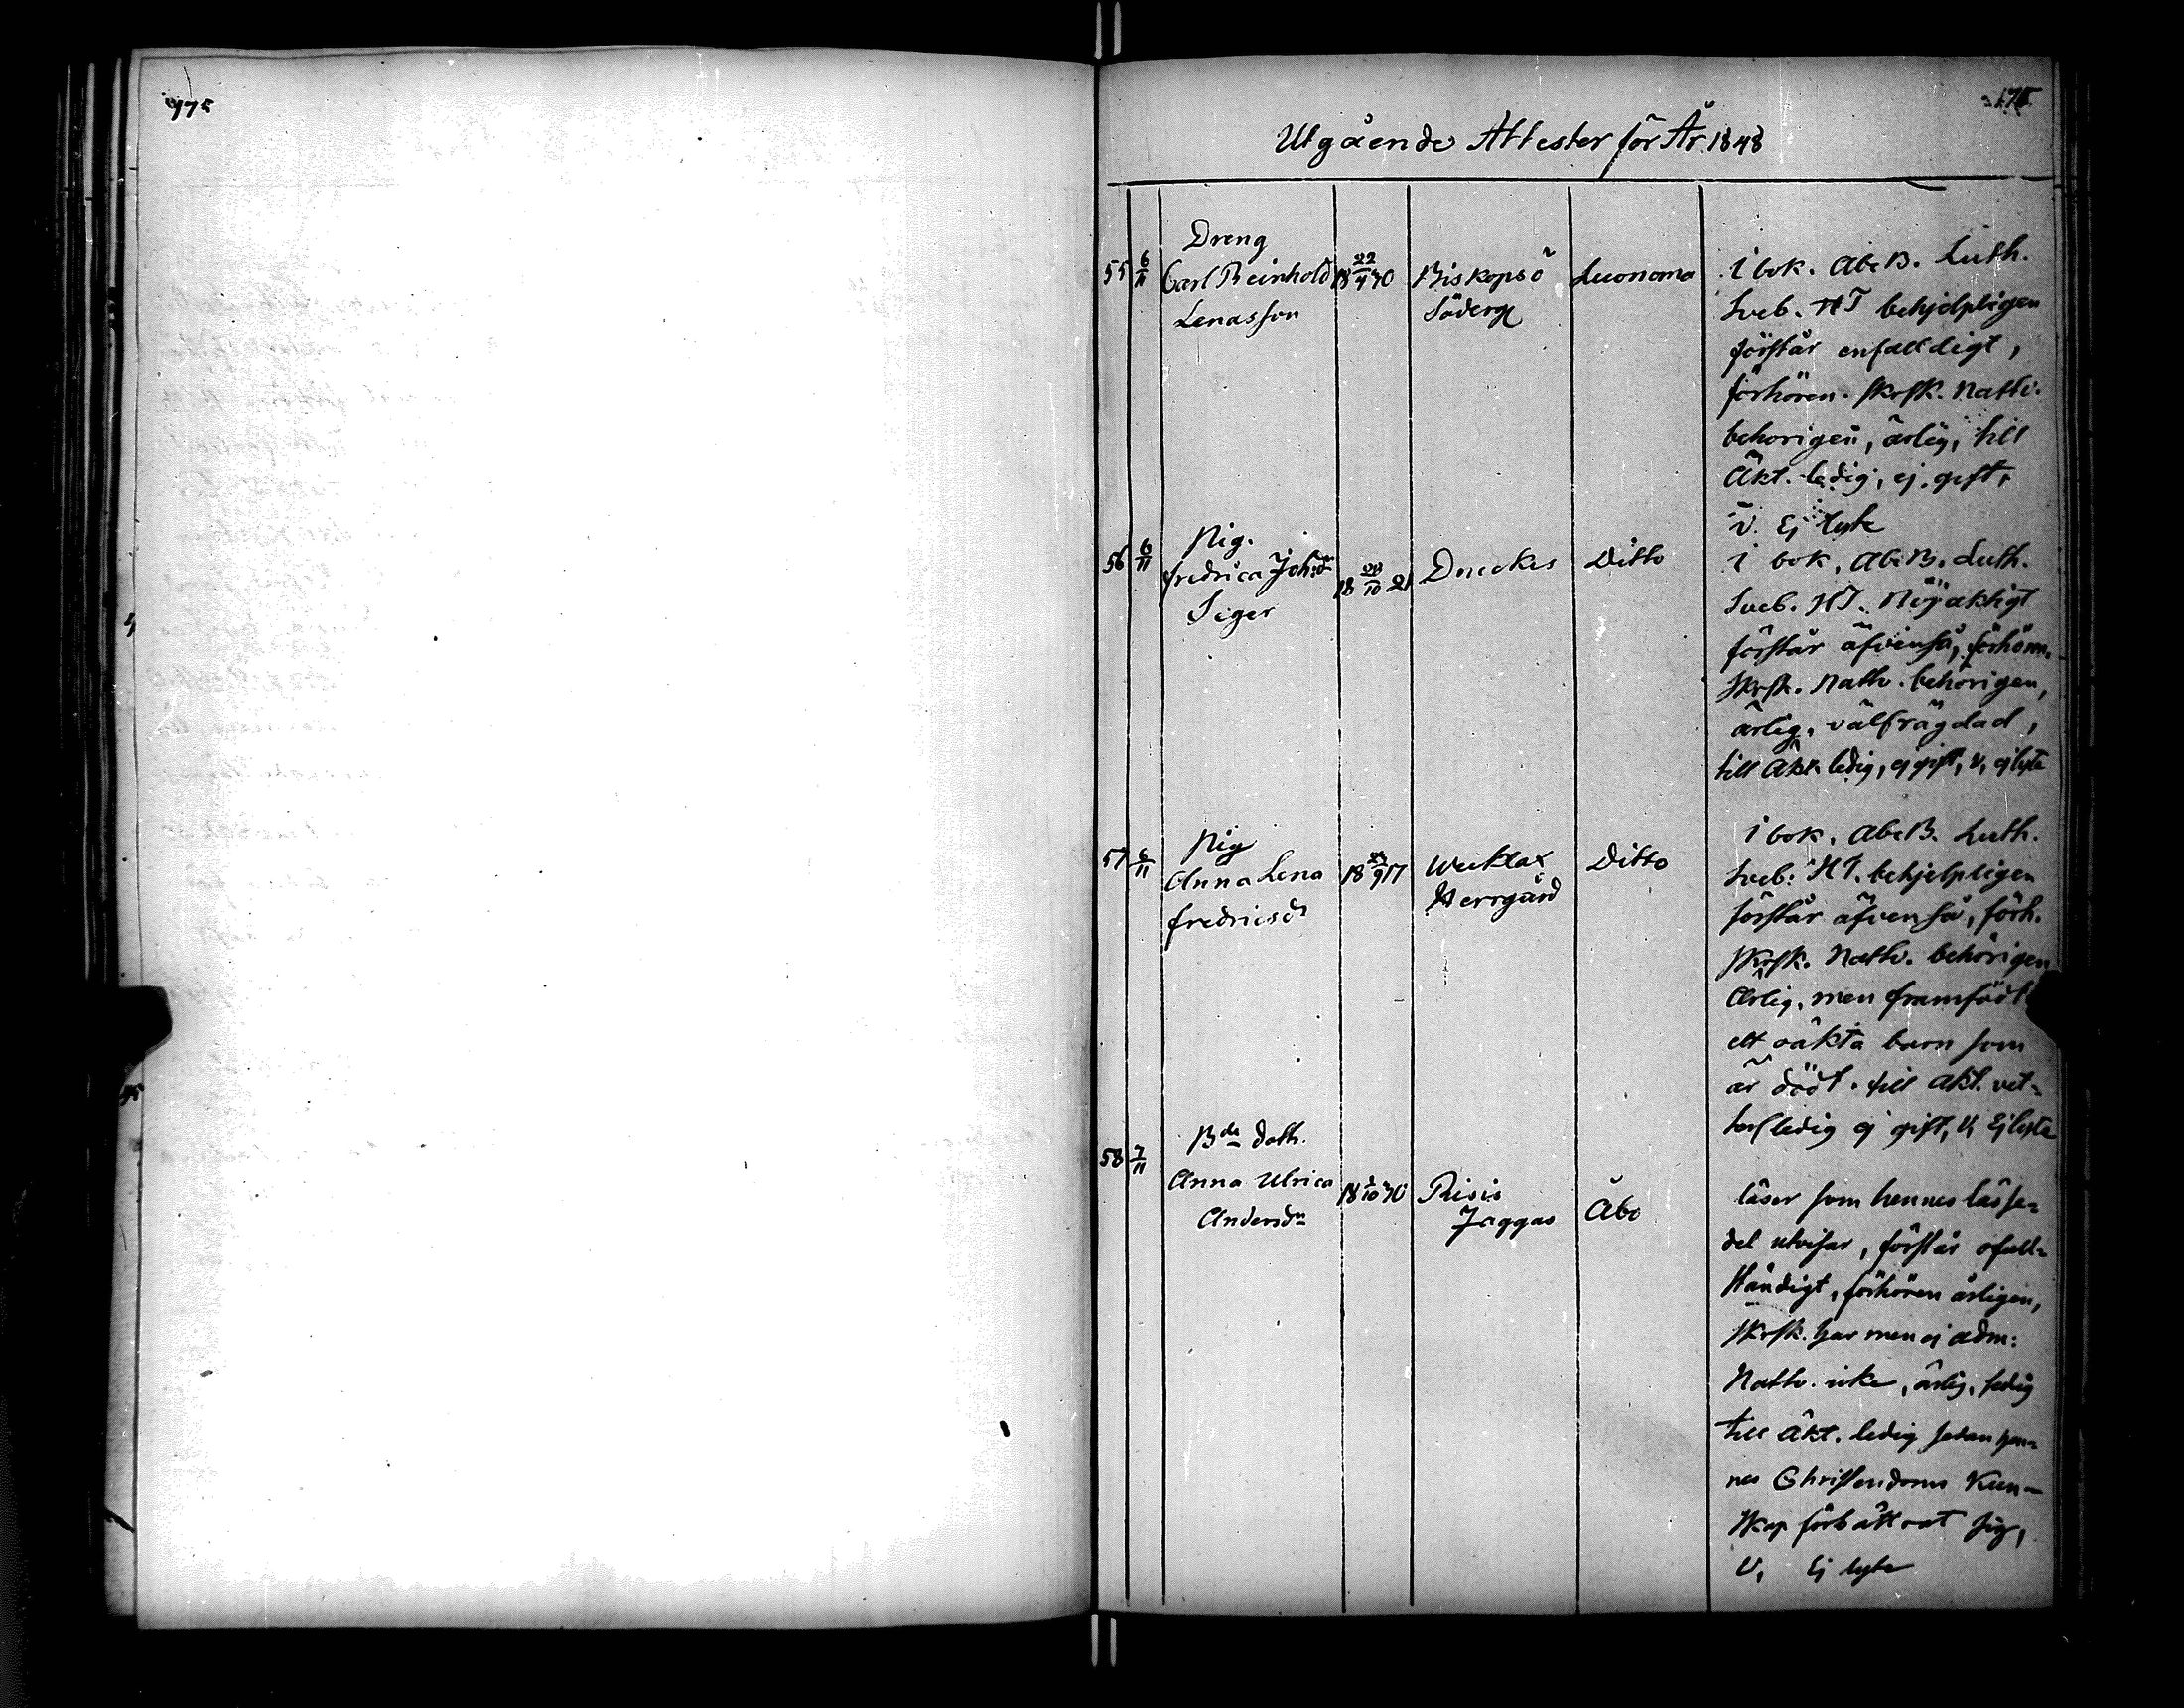 Utgående Attester för År 1848
55 6/11 Dreng Carl Reinhold Lenasson 18 22/4 30 Biskopsö Söderg Luonoma
i bok. AbcB. Luth.
Sveb. HT behjelpligen
förstår enfalldigt,
förhören. skrsk. Nattv.
behörigen, ärlig, till
Äkt. ledig, ej gift,
v. Ej lyte
56 6/11 Pig. Fredrica Joh:dr Seger 18 10 21 Ditto
i bok, AbcB. Luth.
Sveb. HT. Nöjaktigt
förstår äfvenså, förhören.
skrsk. Nattv. behörigen,
ärlig, välfrägdad,
till Äkt. ledig, ej gift, v, ej lyte
57 6/11 Pig Anna Lena Fredricsdr 18 9 17 Herrgård Ditto
i bok, AbcB. Luth.
Sveb: HT. behjelpligen
förstår äfvenså, förh.
skrsk. Nattv. behörigen
Ärlig, men framfödt
ett oäkta barn som
är dödt. till Äkt. vet-
terl. ledig ej gift, V, Ej lyte
58 7/11 Bde dott. Anna Ulrica Andersdr 18 10 30 Jaggas Åbo
läser som hennes lässe-
del utvisar, förstår ofull-
ständigt, förhören årligen,
skrsk. har men ej adm:
Nattv. icke, ärlig, sedig
till Äkt. ledig sedan hen-
nes Christendoms Kun-
skap förbättrat sig,
V, Ej lyte